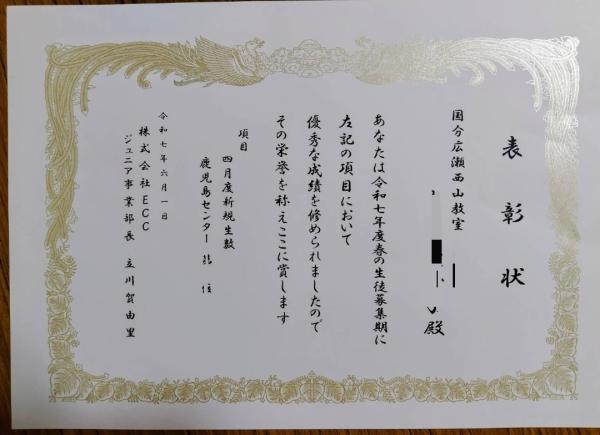 表彰状
国分広瀬西山教室
殿
あなたは令和七年度春の生徒募集期に
左記の項目において
優秀な成績を修められましたので
その栄誉を称えここに賞します
項目
四月度新規生数
鹿児島センター 位
令和七年六月一日
株式会社ECC
ジュニア事業部長 立川賀由里